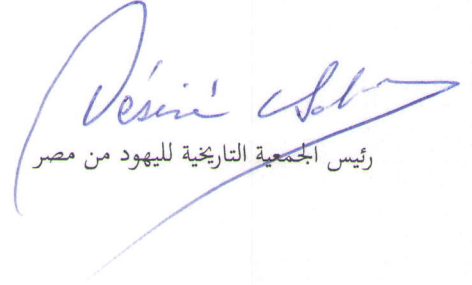 Désiré
رئيس الجمعية التاريخية لليهود من مصر